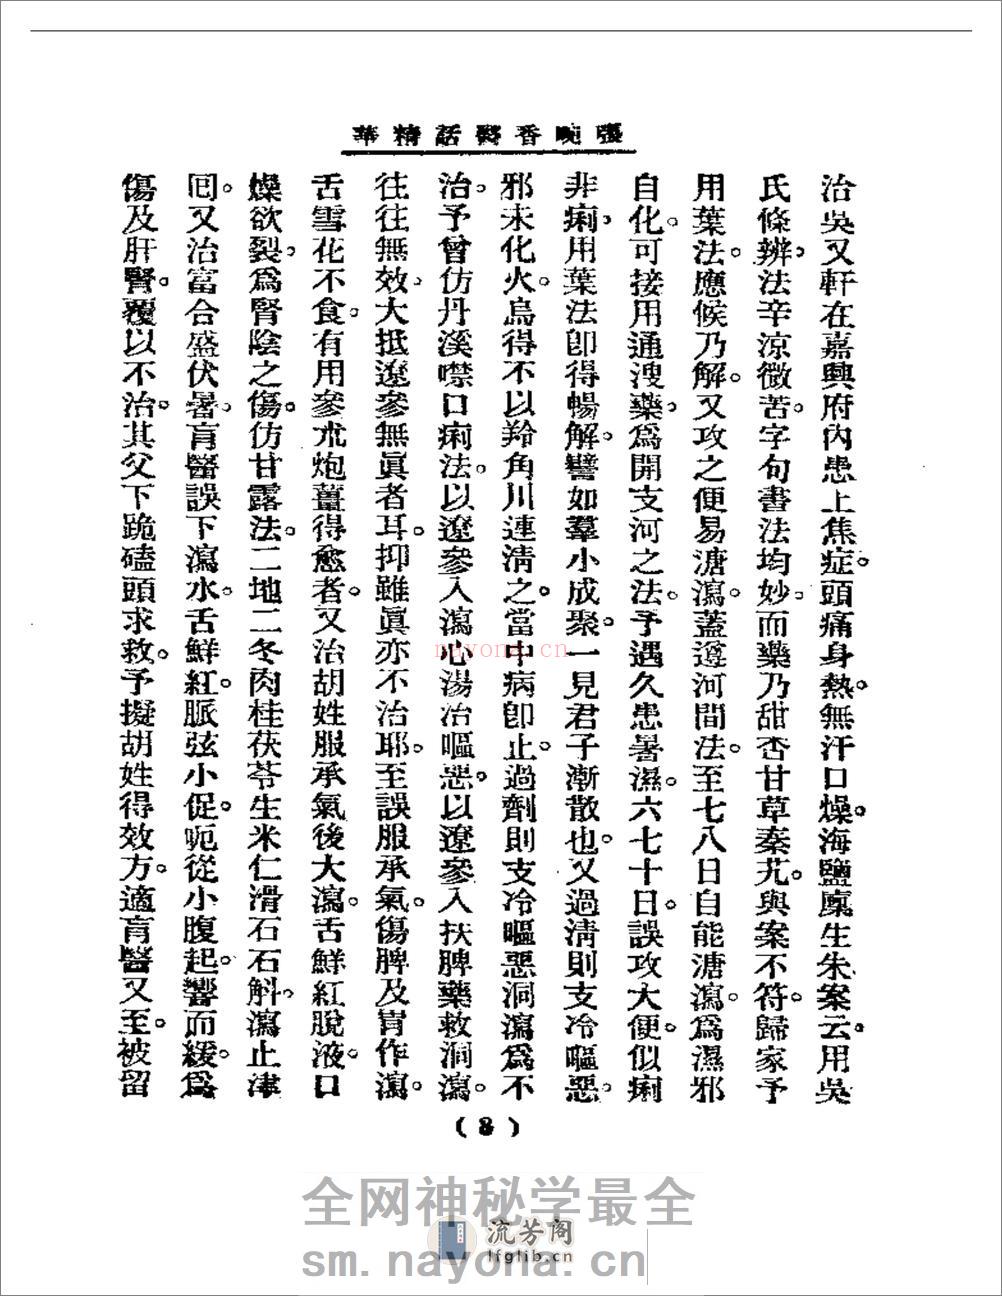 張畹香醫話精華
治吳又軒在嘉興府內患上焦症。頭痛身熱。無汗口燥。海鹽廩生朱案云。用吳
氏條辨。法辛涼微苦。字句書法均妙。而藥乃甜杏甘草秦艽。與案不符。歸家予
用葉法。應候乃解。又攻之便易溏瀉。蓋遵河間法。至七八日自能溏瀉。爲濕邪
自化。可接用通溲藥。爲開支河之法。予遇久患暑濕。六七十日。誤攻大便。似痢
非痢。用葉法卽得暢解。譬如羣小成聚。一見君子漸散也。又過清則支冷嘔惡。
邪未化火。烏得不以羚角川連清之。當中病卽止。過劑則支冷嘔惡洞瀉爲不
治。予曾仿丹溪噤口痢法。以遼參入瀉心湯治嘔惡。以遼參入扶脾藥救洞瀉。
往往無效。大抵遼參無眞者耳。抑雖眞亦不治耶。至誤服承氣。傷脾及胃作瀉。
舌雪花不食。有用參朮炮薑得愈者。又治胡姓服承氣後大瀉。舌鮮紅脫液。口
燥欲裂。爲腎陰之傷。仿甘露法。二地二冬肉桂茯苓生米仁滑石石斛。瀉止津
囘。又治富合盛伏暑。肓醫誤下瀉水。舌鮮紅。脈弦小促。呃從小腹起。響而緩。爲
傷及肝腎。覆以不治。其父下跪磕頭求救。予擬胡姓得效方。適肓醫又至。被留
(8)
nayona.cn
全网神秘学最全
sm.nayona.cn
流芳阁
lfglib.cn